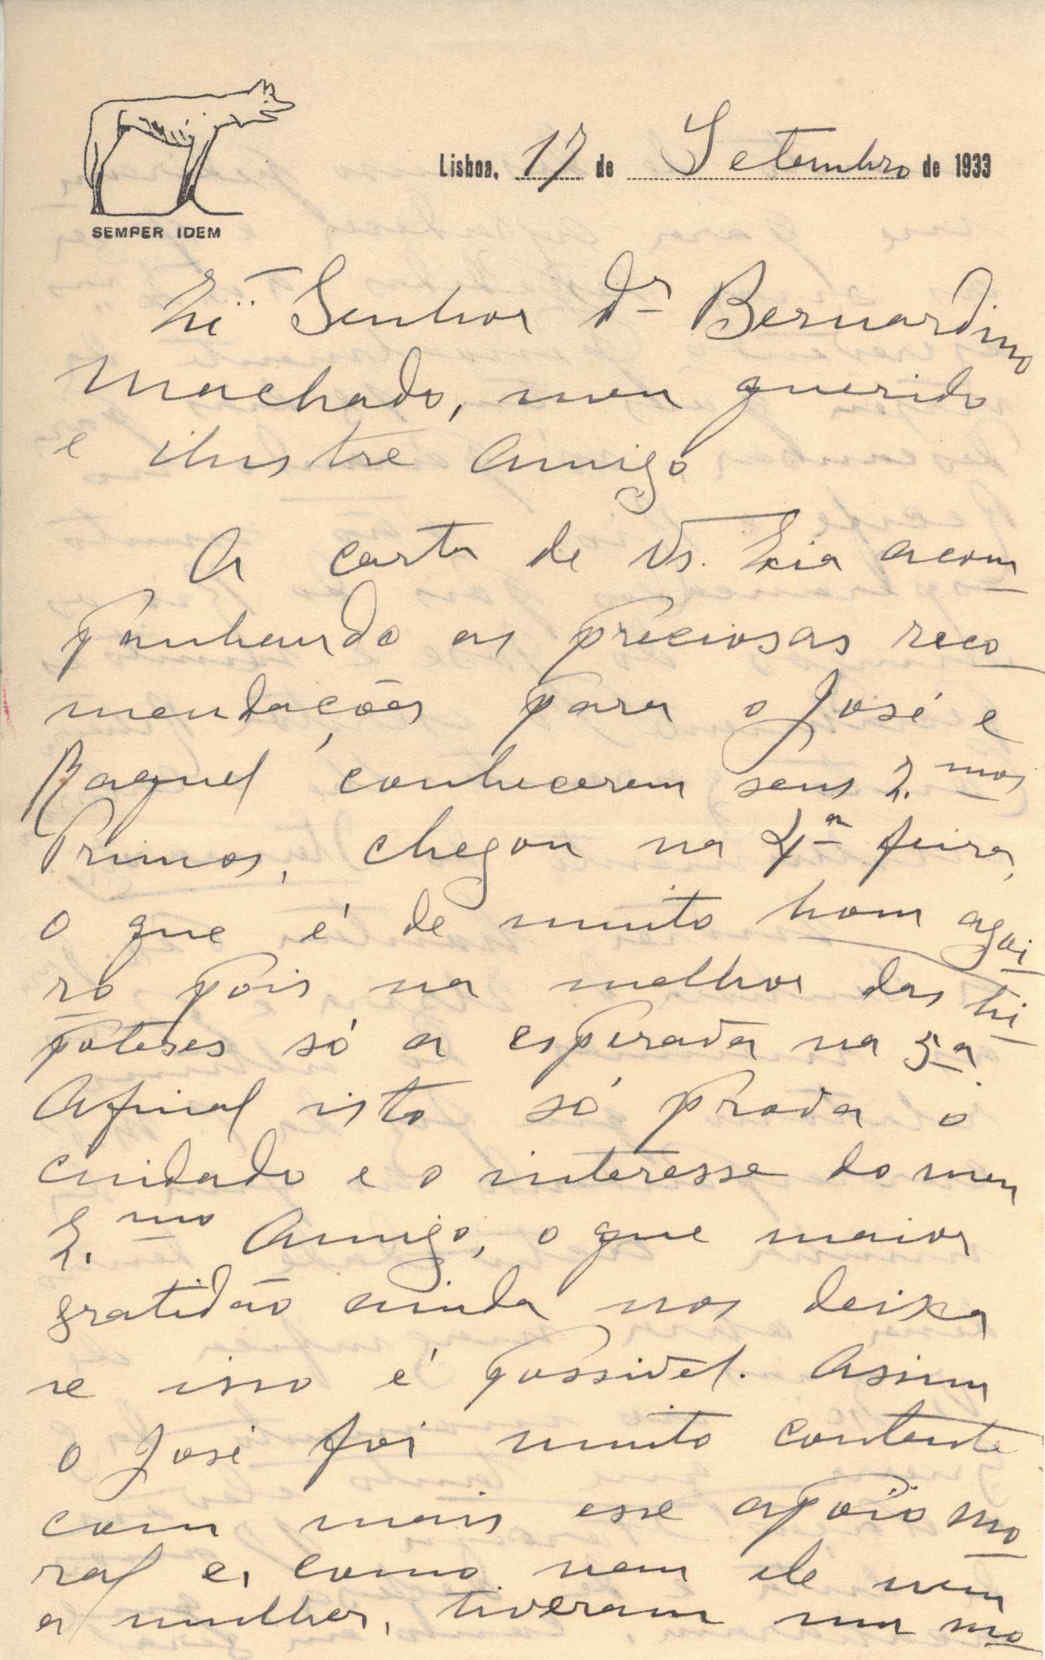 SEMPER IDEM
Lisboa, 17 de Setembro de 1933
Senhor Dr Bernardino
Machado, meu querido
e ilustre Amigo
A carta de Vs. Exia acom-
panhando as preciosas reco-
mendações para o José e
Raquel conhecerem seus 2.mos
Primos, chegou na 4a feira,
o que é de muito bom agoi-
ro pois na melhor das hi-
poteses só a esperava na 5a.
Afinal isto só prova o
cuidado e o interesse do meu
E.mo Amigo, o que maior
gratidão ainda nos deixa
se isso é possivel. Assim
o José foi muito contente
com mais esse apoio mo-
ral e, como nem ele nem
a mulher, tiveram um mo-